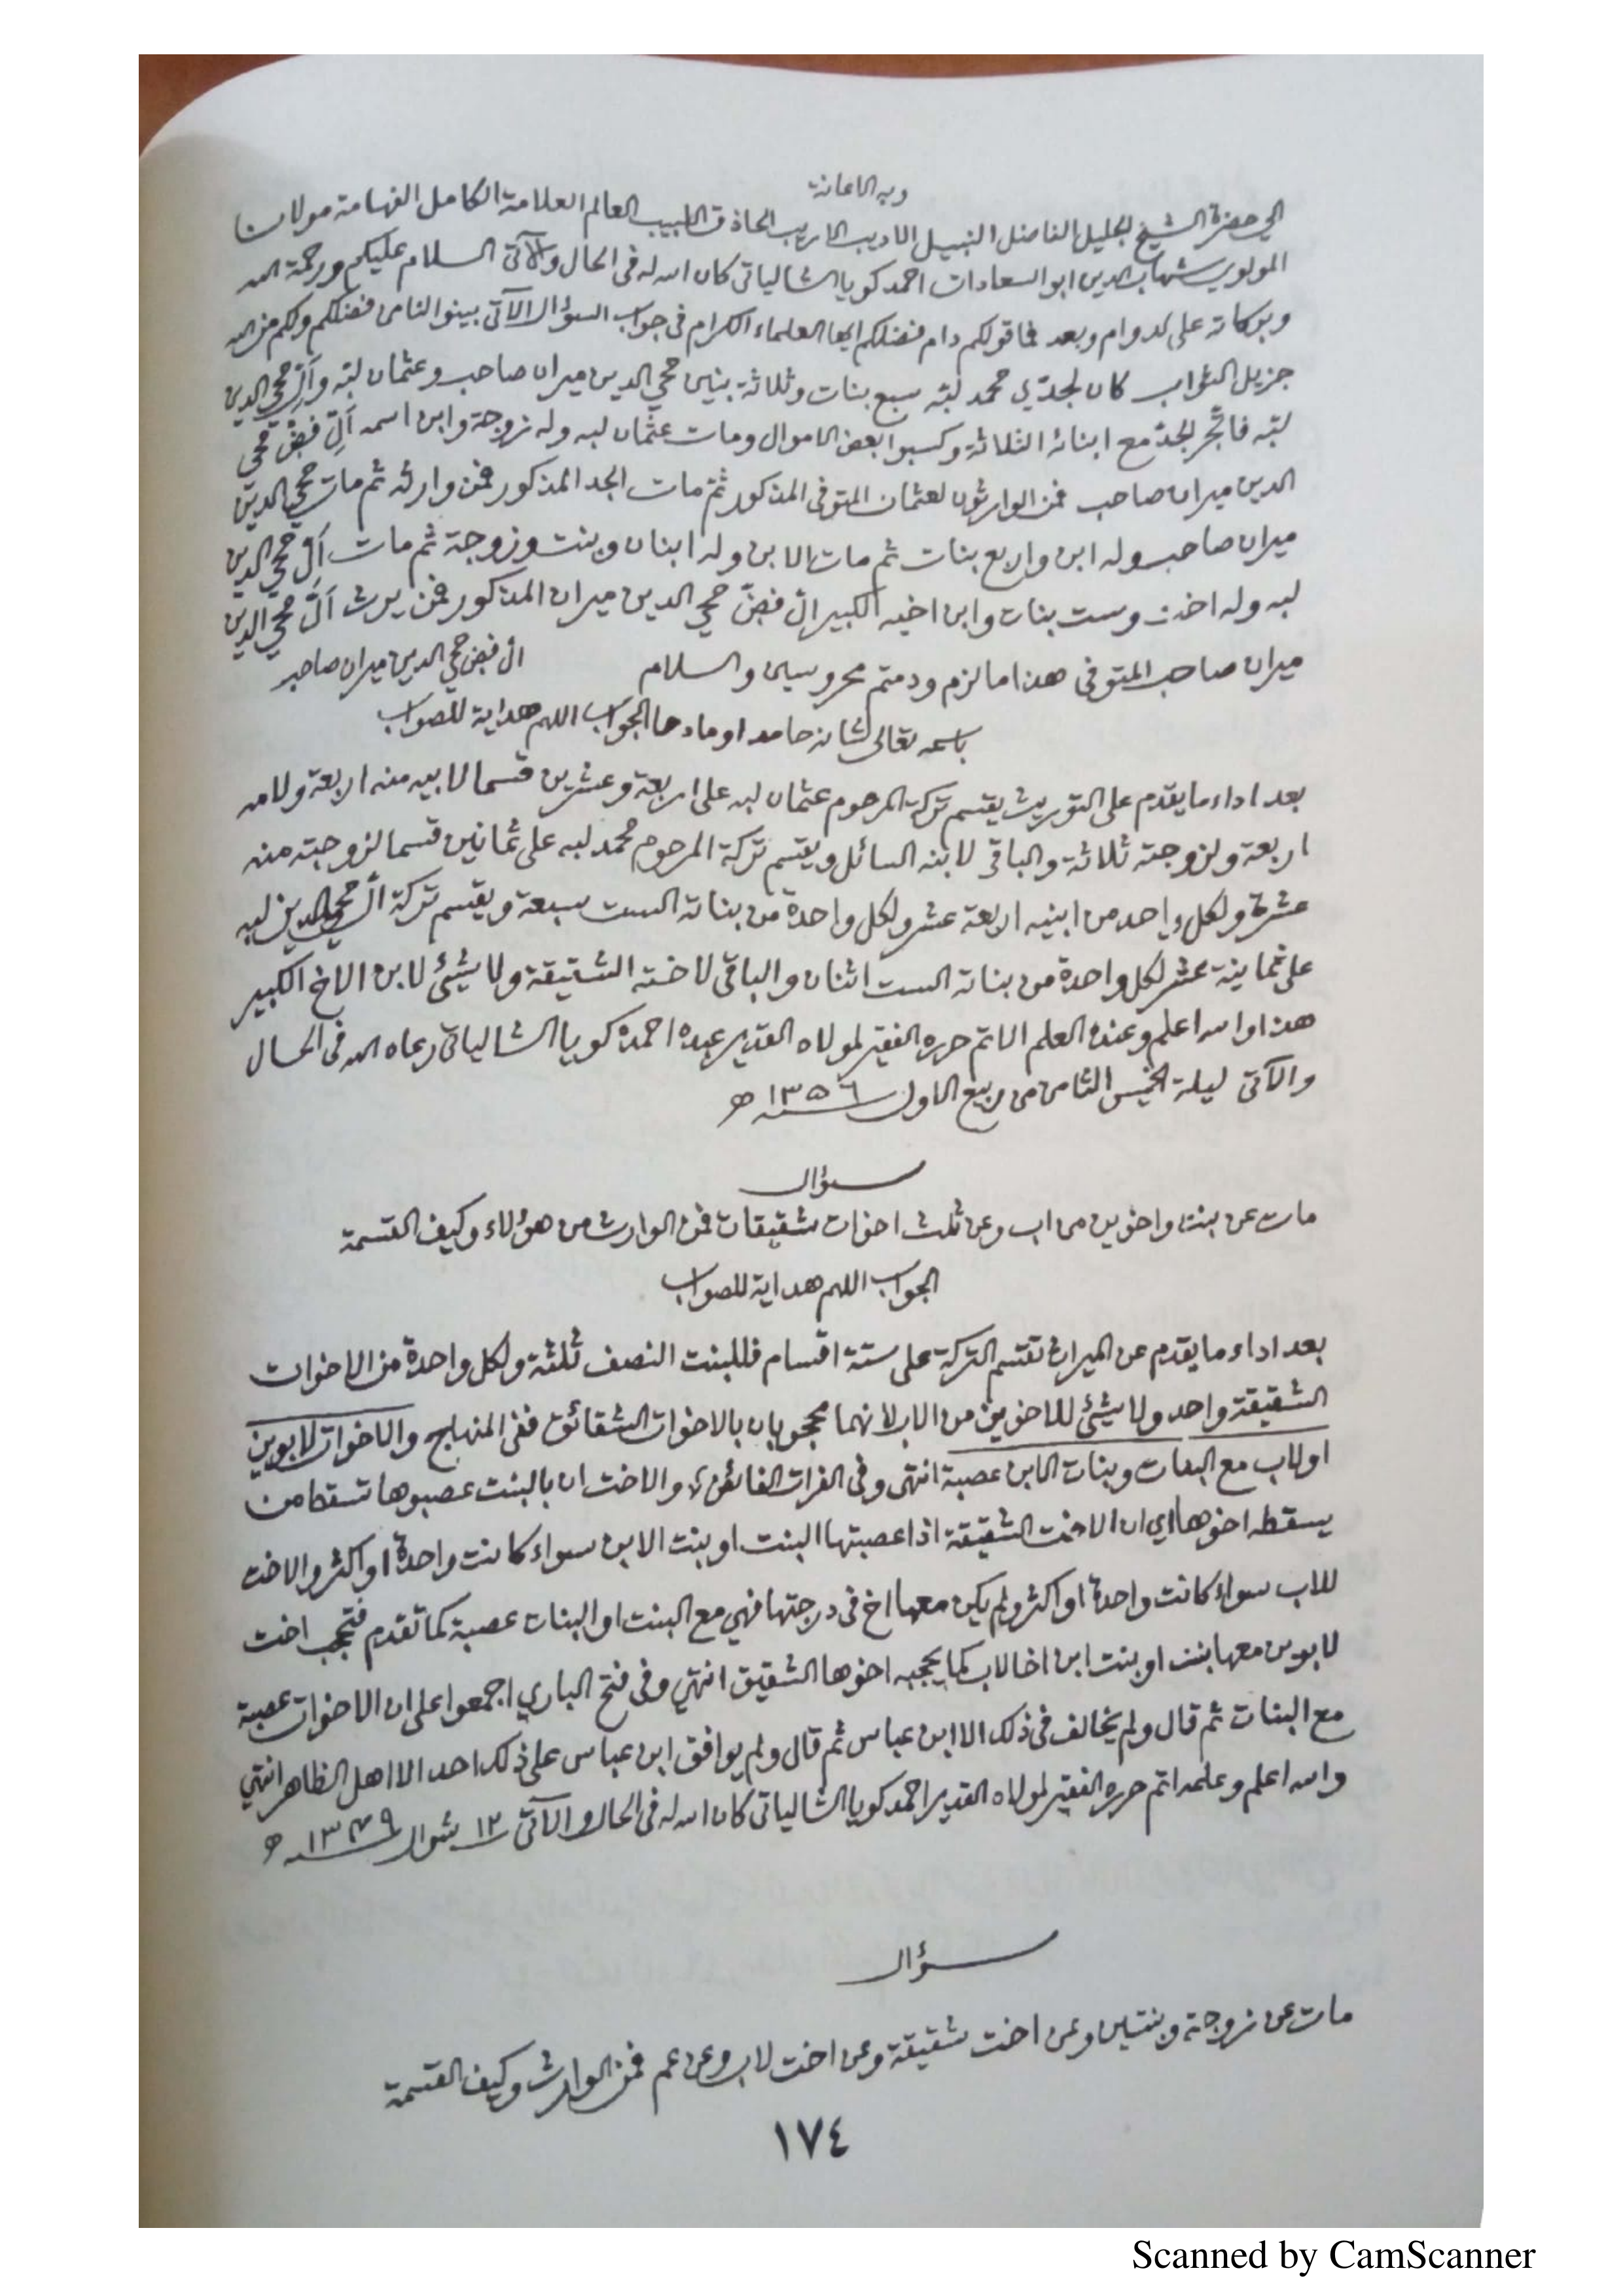 وبه الاعانة
الى حضرة الشيخ الجليل الفاضل النبيل الاديب الاريب الحاذق اللبيب العالم العلامة الكامل الفهامة مولانا
المولوي شهاب الدين ابو السعادات احمد كويا الشالياتي كان الله له فى الحال والآتى السلام عليكم ورحمة الله
وبركاته على الدوام وبعد فما قولكم دام فضلكم ايها العلماء الكرام فى جواب السؤال الآتى بينوا الناس فضلكم ولكم من الله
جزيل الثواب كان لجدّي محمد لبّه سبع بنات وثلاثة بنين محي الدين ميران صاحب وعثمان لبّه وآل محي الدين
لبّه فاتّجر الجدّ مع ابنائه الثلاثة وكسبوا بعض الاموال ومات عثمان لبه وله زوجة وابن اسمه آل فض محي
الدين ميران صاحب فمن الوارثون لعثمان المتوفى المذكور ثمّ مات الجد المذكور فمن وارثه ثم مات محي الدين
ميران صاحب وله ابن واربع بنات ثم مات الابن وله ابنان وبنت وزوجة ثم مات آل محي الدين
لبه وله اخت وست بنات وابن اخيه الكبير ال فضّ محي الدين ميران المذكور فمن يرث آل محي الدين
ميران صاحب المتوفى هذا ما لزم ودمتم محروسين والسلام ال فض محي الدين ميران صاحب
باسمه تعالى شانه حامدا ومادحا الجواب اللهم هداية للصواب
بعد اداء ما يقدم على التوريث يقتسم تركة المرحوم عثمان لبه على اربعة وعشرين قسما لابيه منه اربعة ولامه
اربعة ولزوجته ثلاثة والباقى لابنه السائل ويقتسم تركة المرحوم محمد لبه على ثمانين قسما لزوجته منه
عشرة ولكل واحد من ابنيه اربعة عشر ولكل واحدة من بناته الست سبعة ويقسم تركة آل محي الدين لبه
على ثمانية عشر لكل واحدة من بناته الست اثنان والباقى لاخته الشقيقة ولا شيئ لابن الاخ الكبير
هذا والله اعلم وعنده العلم الاتم حرره الفقير لمولاه القدير عبده احمد كويا الشالياتى رعاه الله فى الحال
والآتى ليلة الخميس الثامن من ربيع الاول سنة ١٣٥٦ ه
سؤال
مات عن بنت واخوين من اب وعن ثلث اخوات شقيقات فمن الوارث من هؤلاء وكيف القسمة
الجواب اللهم هداية للصواب
بعد اداء ما يقدم عن الميراث تقتسم التركة على ستة اقسام فللبنت النصف ثلثة ولكل واحدة من الاخوات
الشقيقة واحد ولا شيئ للاخوين من الاب لانهما محجوبان بالاخوات الشقائق ففى المنهاج والاخوات لابوين
اولاب مع البنات وبنات الابن عصبة انتهى وفى الفرات الفائض والاخت ان بالبنت عصبوها تسقط من
يسقطه اخوها اي ان الاخت الشقيقة اذا عصبتها البنت او بنت الابن سواء كانت واحدة او اكثر والاخت
للاب سواء كانت واحدة او اكثر ولم يكن معها اخ فى درجتها فهي مع البنت او البنات عصبة كما تقدم فتحجب اخت
لابوين معها بنت او بنت ابن اخا لاب كما يحجبه اخوها الشقيق انتهى وفى فتح الباري اجمعوا على ان الاخوات عصبة
مع البنات ثم قال ولم يخالف فى ذلك الا ابن عباس ثم قال ولم يوافق ابن عباس على ذلك احد الا اهل الظاهر انتهى
والله اعلم وعلمه اتم حرره الفقير لمولاه القدير احمد كويا الشالياتى كان الله له فى الحال والآتى ١٢ شوال سنة ١٣٤٩ ه
سؤال
مات عن زوجة وبنتين وعن اخت شقيقة وعن اخت لاب وعن عم فمن الوارث وكيف القسمة
١٧٤
Scanned by CamScanner